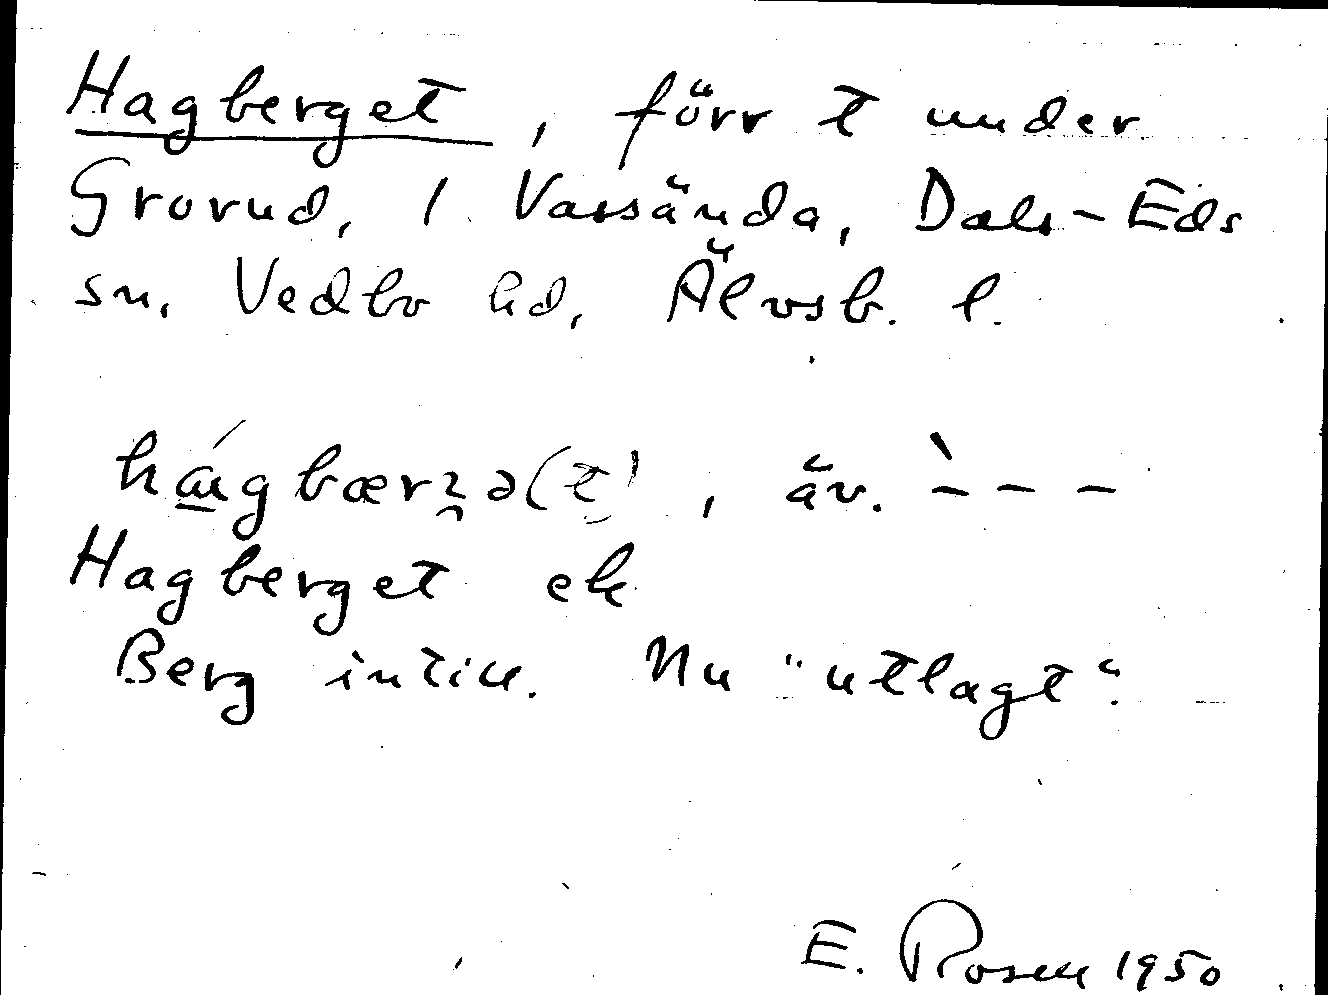 Hagberget, förr t under
Grovud, 1 Vassända, Dals-Eds
sn, Vedbo hd, Älvsb. l.
äv. `- - -
Hagberget ek
Berg intill. Nu "utlagt".
E. Rosen 1950